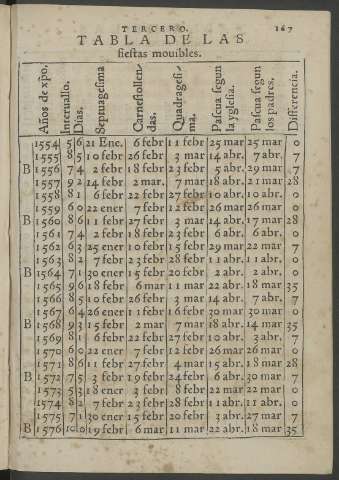 TERCERO. 167
TABLA DE LAS
fiestas mouibles.
Años de xp̃o. Interuallo. Dias. Septuagesima Carnestollendas. Quadragesima. Pascua segun la yglesia. Pascua segun los padres. Differencia.
1554 5 6 21 Ene. 6 febr 11 febr 25 mar 25 mar 0
1555 8 5 10 febr 26 febr 3 mar 14 abr. 7 abr. 7
B 1556 7 4 2 febr 18 febr 23 febr 5 abr. 29 mar 7
1557 9 2 14 febr 2 mar. 7 mar 18 abr. 21 mar 28
1558 8 1 6 febr 22 febr 27 febr 10 abr. 10 abr. 0
1559 6 0 22 ener 7 febr 12 febr 26 mar 26 mar 0
B 1560 8 6 11 febr 27 febr 3 mar 14 abr. 17 mar 28
1561 7 4 2 febr 18 febr 23 febr 6 abr. 6 abr. 0
1562 6 3 25 ener 10 febr 15 febr 29 mar 22 mar 7
1563 8 2 7 febr 23 febr 28 febr 11 abr. 11 abr. 0
B 1564 7 1 30 ener 15 febr 20 febr 2 abr. 2 abr. 0
1565 9 6 18 febr 6 mar 11 mar 22 abr. 18 mar 35
1566 8 5 10 febr 26 febr 3 mar 14 abr. 7 abr. 7
1567 6 4 26 ener 11 febr 16 febr 30 mar 30 mar 0
B 1568 9 3 15 febr 2 mar 7 mar 18 abr. 14 mar 35
1569 8 1 6 febr 22 febr 27 febr 10 abr. 3 abr. 7
1570 6 0 22 ener 7 febr 12 febr 26 mar 26 mar 0
1571 8 6 11 febr 27 febr 4 mar 15 abr. 18 mar 28
B 1572 7 5 3 febr 19 febr 24 febr 6 abr. 30 mar 7
1573 5 3 18 ener 3 febr 8 febr 22 mar 22 mar 0
1574 8 2 7 febr 23 febr 28 febr 11 abr. 11 abr. 0
1575 7 1 30 ener 15 febr 20 febr 3 abr. 27 mar 7
B 1576 10 0 19 febr 6 mar 11 mar 22 abr. 18 mar 35